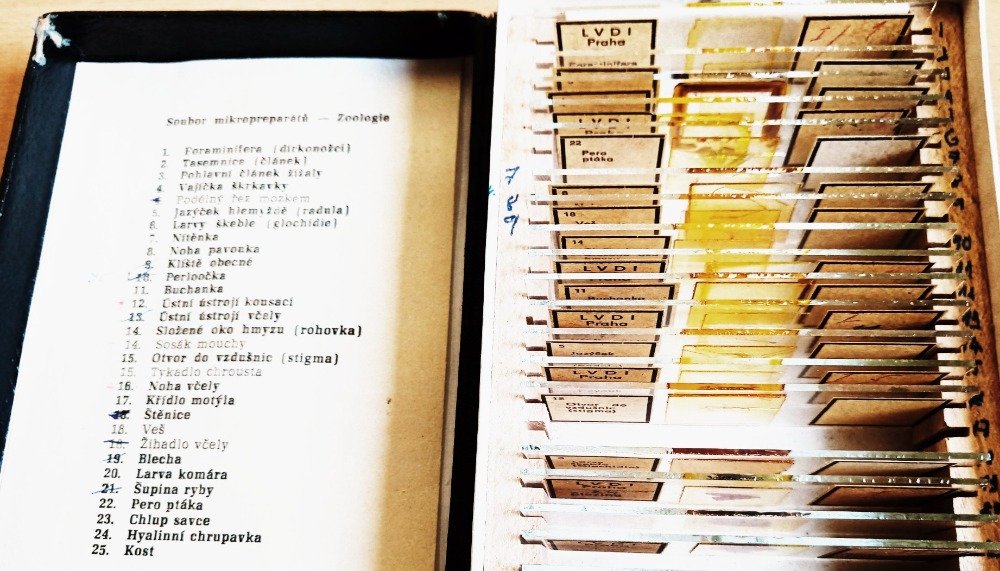 Soubor mikropreparátů — Zoologie
1. Foraminifera (dírkonožci)
2. Tasemnice (článek)
3. Pohlavní článek žížaly
4. Vajíčka škrkavky
Podélný řez mozkem
5. Jazýček hlemýždě (radula)
6. Larvy škeble (glochidie)
7. Nitěnka
8. Noha pavouka
9. Klíště obecné
10. Perloočka
11. Buchanka
12. Ústní ústrojí kousací
13. Ústní ústrojí včely
14. Složené oko hmyzu (rohovka)
14. Sosák mouchy
15. Otvor do vzdušnic (stigma)
15. Tykadlo chrousta
16. Noha včely
17. Křídlo motýla
18. Štěnice
18. Veš
18. Žihadlo včely
19. Blecha
20. Larva komára
21. Šupina ryby
22. Pero ptáka
23. Chlup savce
24. Hyalinní chrupavka
25. Kost
LVDI
Praha
22
Pero
ptáka
18
Veš
14
LVDI
11
LVDI
Praha
5
LVDI
Praha
15
Otvor do
vzdušnic
(stigma)
LVDI
1
2
6
10
17